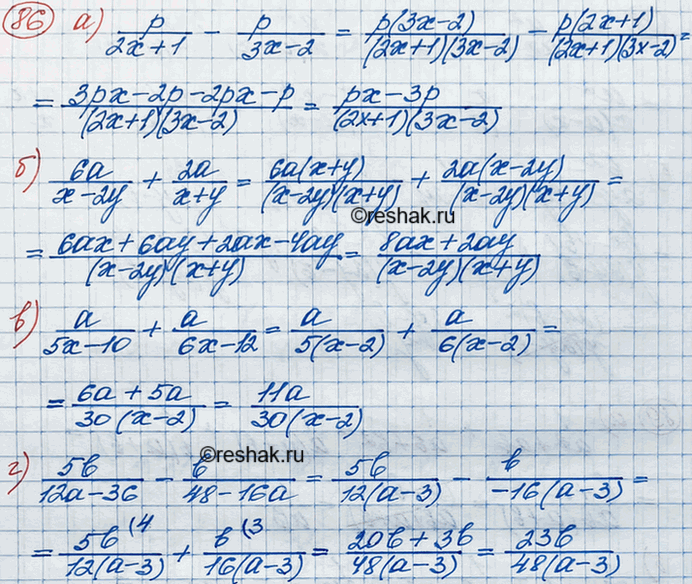 86 а) p/(2x+1) − p/(3x−2) = p(3x−2)/((2x+1)(3x−2)) − p(2x+1)/((2x+1)(3x−2)) =
= (3px−2p−2px−p)/((2x+1)(3x−2)) = (px−3p)/((2x+1)(3x−2))
б) 6a/(x−2y) + 2a/(x+y) = 6a(x+y)/((x−2y)(x+y)) + 2a(x−2y)/((x−2y)(x+y)) =
©reshak.ru
= (6ax+6ay+2ax−4ay)/((x−2y)(x+y)) = (8ax+2ay)/((x−2y)(x+y))
в) a/(5x−10) + a/(6x−12) = a/(5(x−2)) + a/(6(x−2)) =
= (6a+5a)/(30(x−2)) = 11a/(30(x−2))
©reshak.ru
г) 5b/(12a−36) − b/(48−16a) = 5b/(12(a−3)) − b/(−16(a−3)) =
= 5b(4/(12(a−3)) + b(3/(16(a−3)) = (20b+3b)/(48(a−3)) = 23b/(48(a−3))